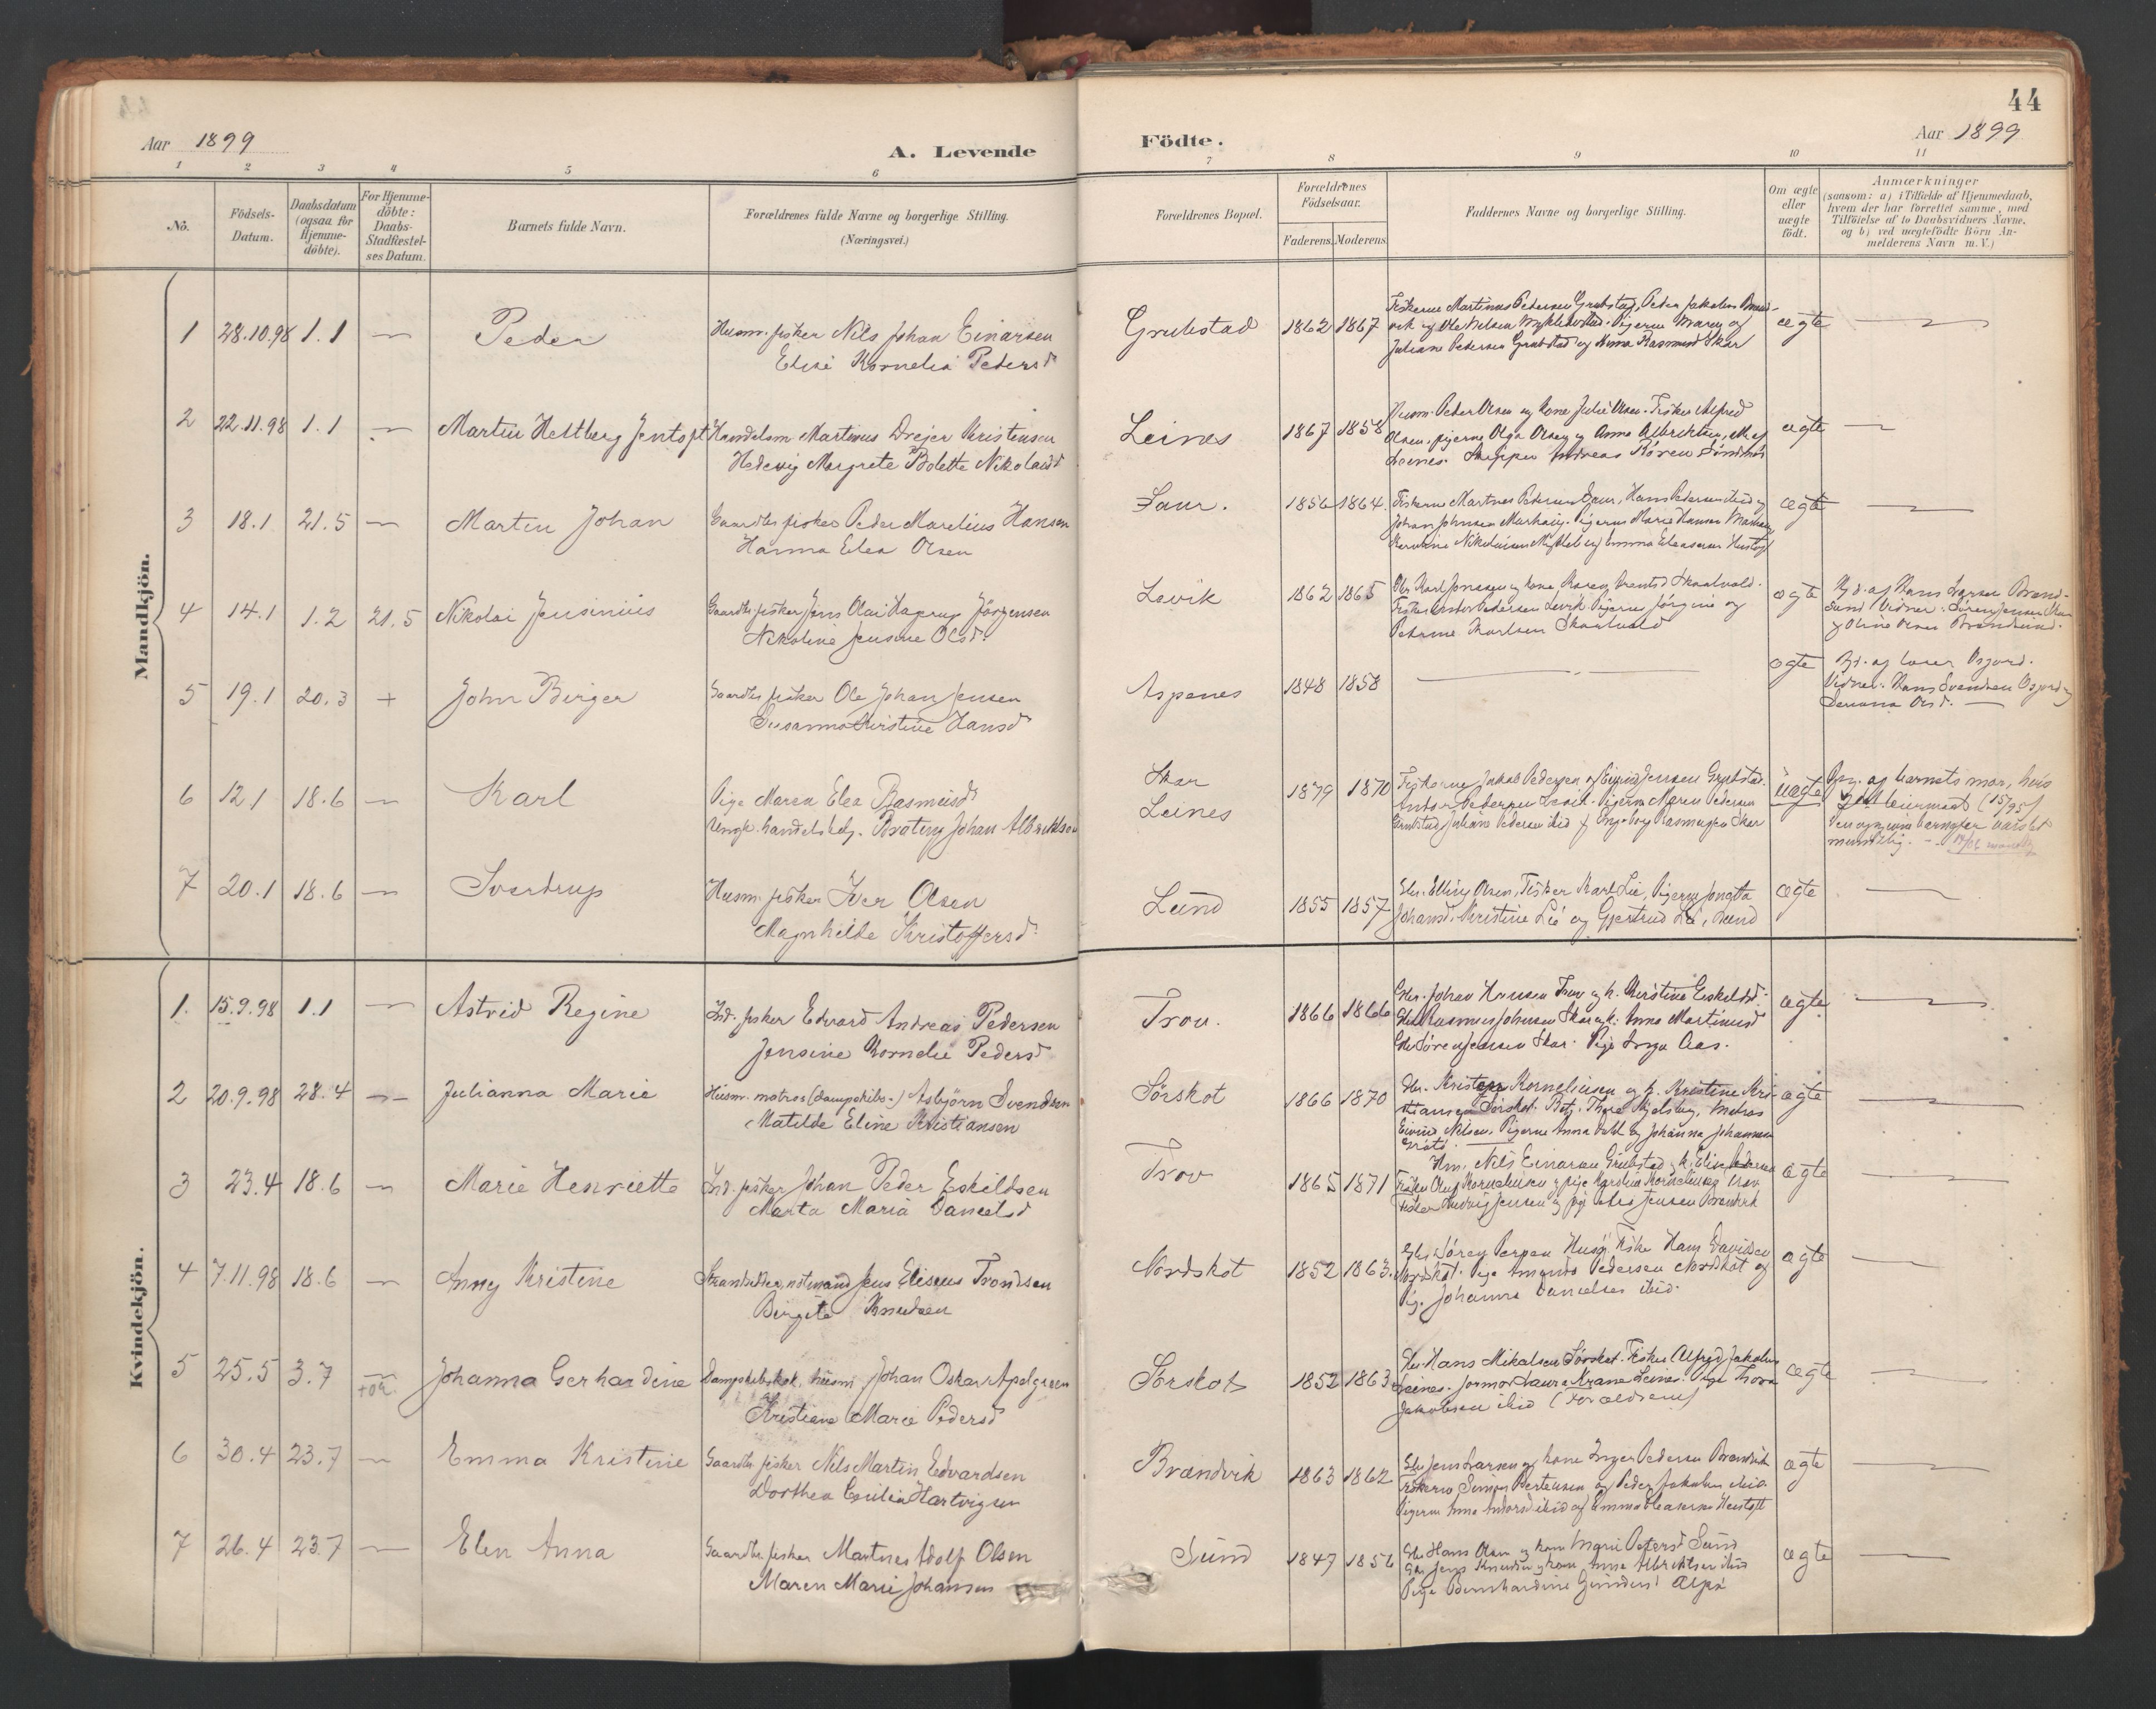 44
Aar 1899
A. Levende
Födte.
Aar 1899
1 2 3 4 5 6 7 8 9 10 11
No.
Födsels-Datum.
Daabsdatum (ogsaa for Hjemme-döbte).
For Hjemme-döbte: Daabs-Stadfestel-ses Datum.
Barnets fulde Navn.
Forældrenes fulde Navne og borgerlige Stilling.
(Næringsvei.)
Forældrenes Bopæl.
Forældrenes Födselsaar.
Faderens. Moderens.
Faddernes Navne og borgerlige Stilling.
Om ægte eller uægte födt.
Anmærkninger
(saasom: a) i Tilfælde af Hjemmedaab,
hvem der har forrettet samme, med
Tilföielse af to Daabsvidners Navne,
og b) ved uægtefödte Börn An-
melderens Navn m. V.)
Mandkjön.
1 28.10.98 1.1 — Peder Husm. fisker Nils Johan Einarsen
Elise Kornelia Pedersd.
Grubstad 1862 1867
Juliane Pedersen Grubstad og Anna Rasmusd Skar
ægte —
2 22.11.98 1.1 — Martin Heltberg Jentoft Handelsm. Martinus Drejer Kristensen
Hedevig Margrete Bolette Nikolaisd.
Leines 1867 1858 Husm. Peder Olsen og kone Julie Olsen. Fisker Alfred
Olsen, pigerne Olga Olsen og Anna Albriktsen, alle af
Leines. Skipper Andreas
ægte —
3 18.1 21.5 — Martin Johan Gaardbr. fisker Peder Marelius Hansen
Hanna Elea Olsen
Saur. 1856 1864. Fiskerne Martnes Pedersen Saur, Hans Pedersen ibid og
Johan Johnsen Pigerne Marie Hansen
ægte —
4 14.1 1.2 21.5 Nikolai Jensinius Gaardbr. fisker Jens Olai Hagrup Jörgensen
Nikoline Jensine Olsd.
Løvik 1862 1865 Gbr. Karl Jonassen og kone Karen Skaalvold.
Fisker Anton Pedersen Løvik. Pigerne Jørgine og
Petrine Karlsen Skaalvold
ægte Hjd. af Hans Larsen Brand-
sund. Vidner: Sören Jensen
og Oline Olsen Brandsund.
5 19.1 20.3 + John Birger Gaardbr. fisker Ole Johan Jensen
Susanna Kristine Hansd.
Aspenes 1848 1858 — ægte Hjd. af
Vidner: Hans Svendsen
Olsd. —
6 12.1 18.6 — Karl Pige Maren Elea Rasmusd.
Ungk. handelsbetj. Johan Albriktsen
Skar
Leines 1879 1870 Fiskerne Jakob Pedersen og Jensen Grubstad.
Anton Pedersen Løvik. Pigerne Maren Pedersen
Grubstad Juliane Pedersen ibid og Ingeborg Rasmussen Skar
uægte af barnets mor, hvis
mundtlig.
7 20.1 18.6 — Sverdrup Husm. fisker Iver Olsen
Magnhilde Kristoffersd.
Lund 1855 1857 Gbr. Elling Olsen, Fisker Karl Lie, Pigerne
Johansd. Kristine Lie og Gjertrud Lie, Lund
ægte —
Kvindekjön.
1. 15.9.98 1.1 — Astrid Regine Ind. fisker Edvard Andreas Pedersen
Jensine Kornelie Pedersd.
Trov. 1866 1866 Gbr. Johan Hansen Trov og k. Kirstine Eskildsd.
Gbr. Rasmus Johnsen Skar og k. Anna Martinusd
Gbr. Sören Jensen Skar. Pige Inga Aas.
ægte —
2 20.9.98 28.4 — Julianna Marie Husm. matros (dampskibs-) Asbjörn Svendsen
Matilde Eline Kristiansen
Sörskot 1866 1870 Gbr. Kornelius­sen og k. Kristine Kri-
stiansen Sörskot. matros
Nilsen. Pigerne Anna Dahl og Johanna Johannsen
ægte —
3 23.4 18.6 — Marie Henriette Ind. fisker Johan Peder Eskildsen
Marta Maria Danielsd
Trov 1865 1871 Hm. Nils Einarsen Grubstad og k. Elise Pedersen
Fisker Oluf Korneliussen og pige Karolia Korneliussen Trov
Fisker Ludvig Jensen og pige Jensen Brændvik
ægte —
4 7.11.98 18.6 — Anny Kristine Strandsidder, notmand Jens Eliseus Trondsen
Birgite Knudsen
Nordskot 1852 1863. Fisker Hans Davidsen
Nordskot. Pige Amanda Pedersen Nordskot og
Pig. Johanna Danielsen ibid.
ægte —
5 25.5 3.7 Johanna Gerhardine Dampskibskok, husm. Johan Oskar Apelgreen
Kristiane Marie Pedersd
Sörskot 1852 1863 Gbr. Hans Mikalsen Sörskot. Fisker Alfred Jakobsen
Leines. Jormor Laura Krane Leines. Pige Thora
Jakobsen ibid (Forældrene)
ægte —
6 30.4 23.7 — Emma Kristine Gaardbr. fisker Nils Martin Edvardsen
Dorthea Cecilia Hartvigsen
Brændvik 1863 1862 Gbr. Jens Larsen og kone Inger Pedersen Brændvik
Fiskerne Simon Bertensen og Peder Jakobsen ibid.
Pigerne Anna ibid og Emma Eleasersen
ægte —
7 26.4 23.7 — Elen Anna Gaardbr. fisker Martnes Adolf Olsen
Maren Marie Johansen
Sund 1847 1856 Gbr. Hans Olsen og kone Marie Petersd Sund
Gbr. Jens Knudsen og kone Anna Albriktsen ibid
Pige Bernhardine
ægte —